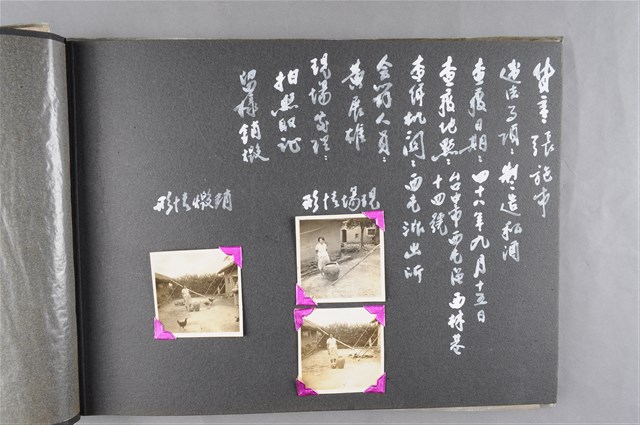 貨主：張施市
違法事項：製造私酒
查獲日期：四十八年九月十五日
查獲地點：台中市西屯區西林巷
十四號
查緝机関：西屯派出所
會首人員：
黃展雄
現場處理：
拍照取证
留樣銷燬
現場情形
銷燬情形